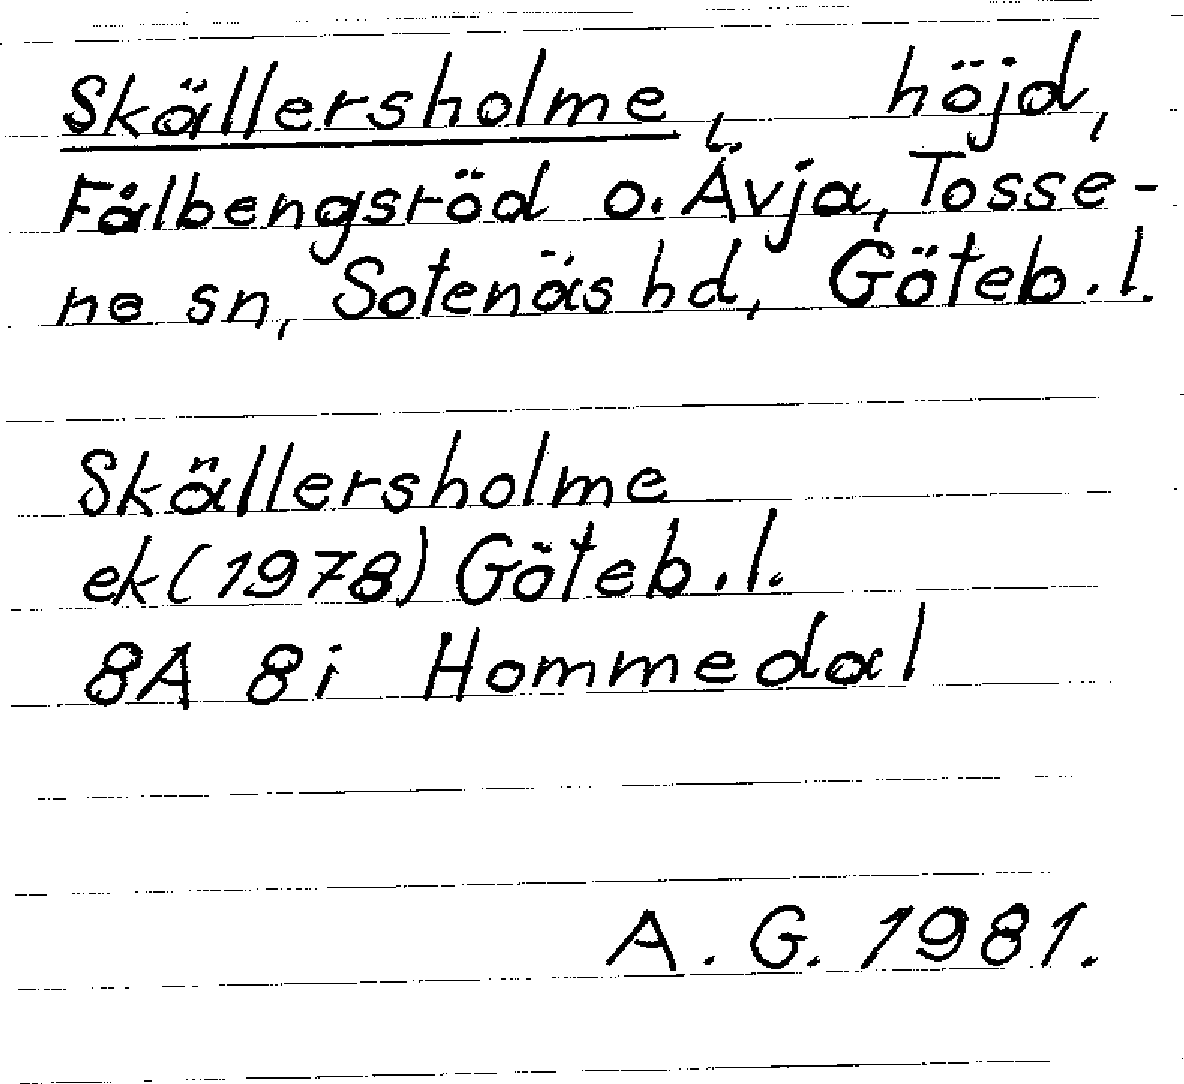 Skällersholme, höjd,
Fålbengsröd o. Ävja, Tosse-
ne sn, Sotenäs hd, Göteb.l.
Skällersholme
ek (1978) Göteb.l.
8A 8i Hommedal
A. G. 1981.